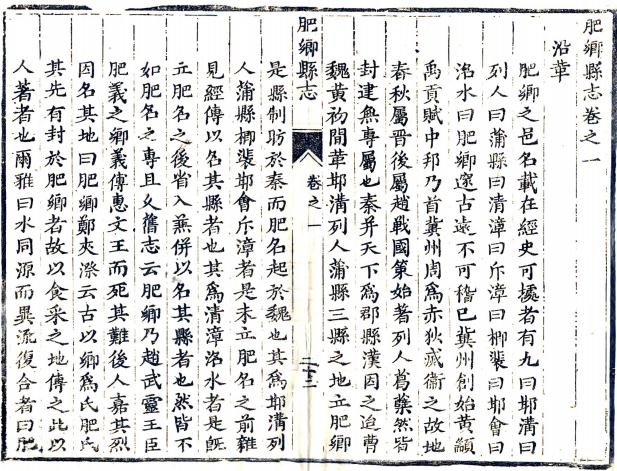 肥鄉縣志卷之一
沿革
肥鄉之邑名載在經史可據者有九曰邯溝曰
列人曰蒲縣曰清漳曰斥漳曰栁裴曰邯會曰
洺水曰肥鄉邃古遠不可稽已冀州創始黃顓
禹貢賦中邦乃首冀州周爲赤狄滅衞之故地
春秋屬晉後屬趙戰國策始著列人然皆
封建無專屬也秦并天下爲郡縣漢因之迨曹
魏黃初間邯溝列人蒲縣三縣之地立肥鄉
肥鄉縣志
卷之一
是縣制昉於秦而肥名起於魏也其爲邯溝列
人蒲縣栁裴邯會斥漳者是未立肥名之前雜
見經傳以名其縣者也其爲清漳洺水者是旣
立肥名之後省入兼併以名其縣者也然皆不
如肥名之專且久舊志云肥鄉乃趙武靈王臣
肥義之鄉義傳惠文王而死其難後人嘉其烈
因名其地曰肥鄉鄭夾漈云古以鄉爲氏肥氏
其先有封於肥鄉者故以食采之地傳之此以
人著者也爾雅曰水同源而異流復合者曰肥